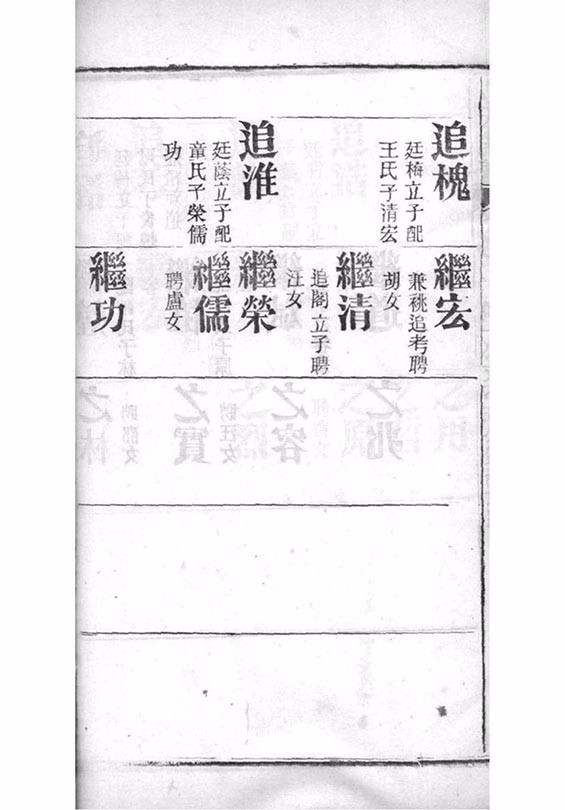 追槐
廷梅立子配
王氏子清宏
追淮
廷蔭立子配
童氏子榮儒
功
繼宏
兼祧追考聘
胡女
繼清
追閣立子聘
汪女
繼榮
繼儒
聘盧女
繼功